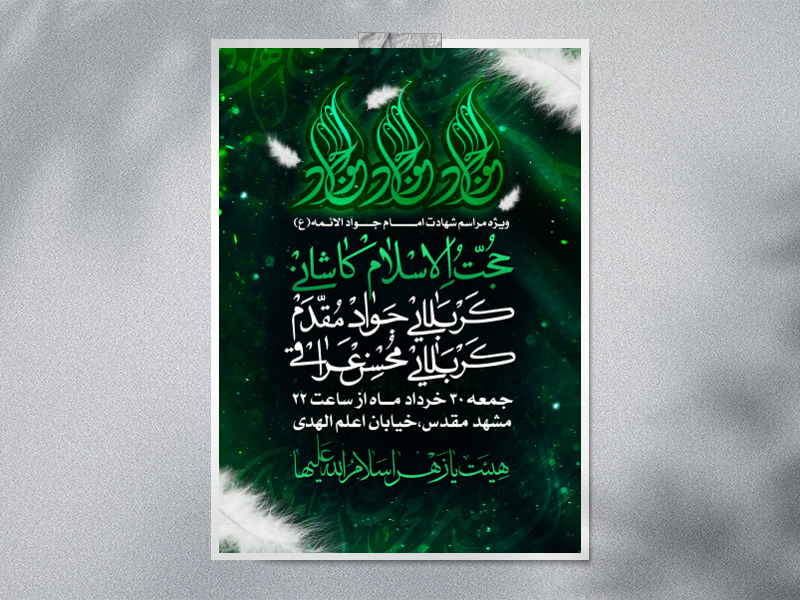 ویژه مراسم شهادت امام جواد الائمه (ع)
حجت الاسلام کاشانی
کربلایی جواد مقدم
کربلایی محسن عراقی
جمعه ۳۰ خرداد ماه از ساعت ۲۲
مشهد مقدس، خیابان اعلم الهدی
هیئت یا زهرا سلام الله علیها